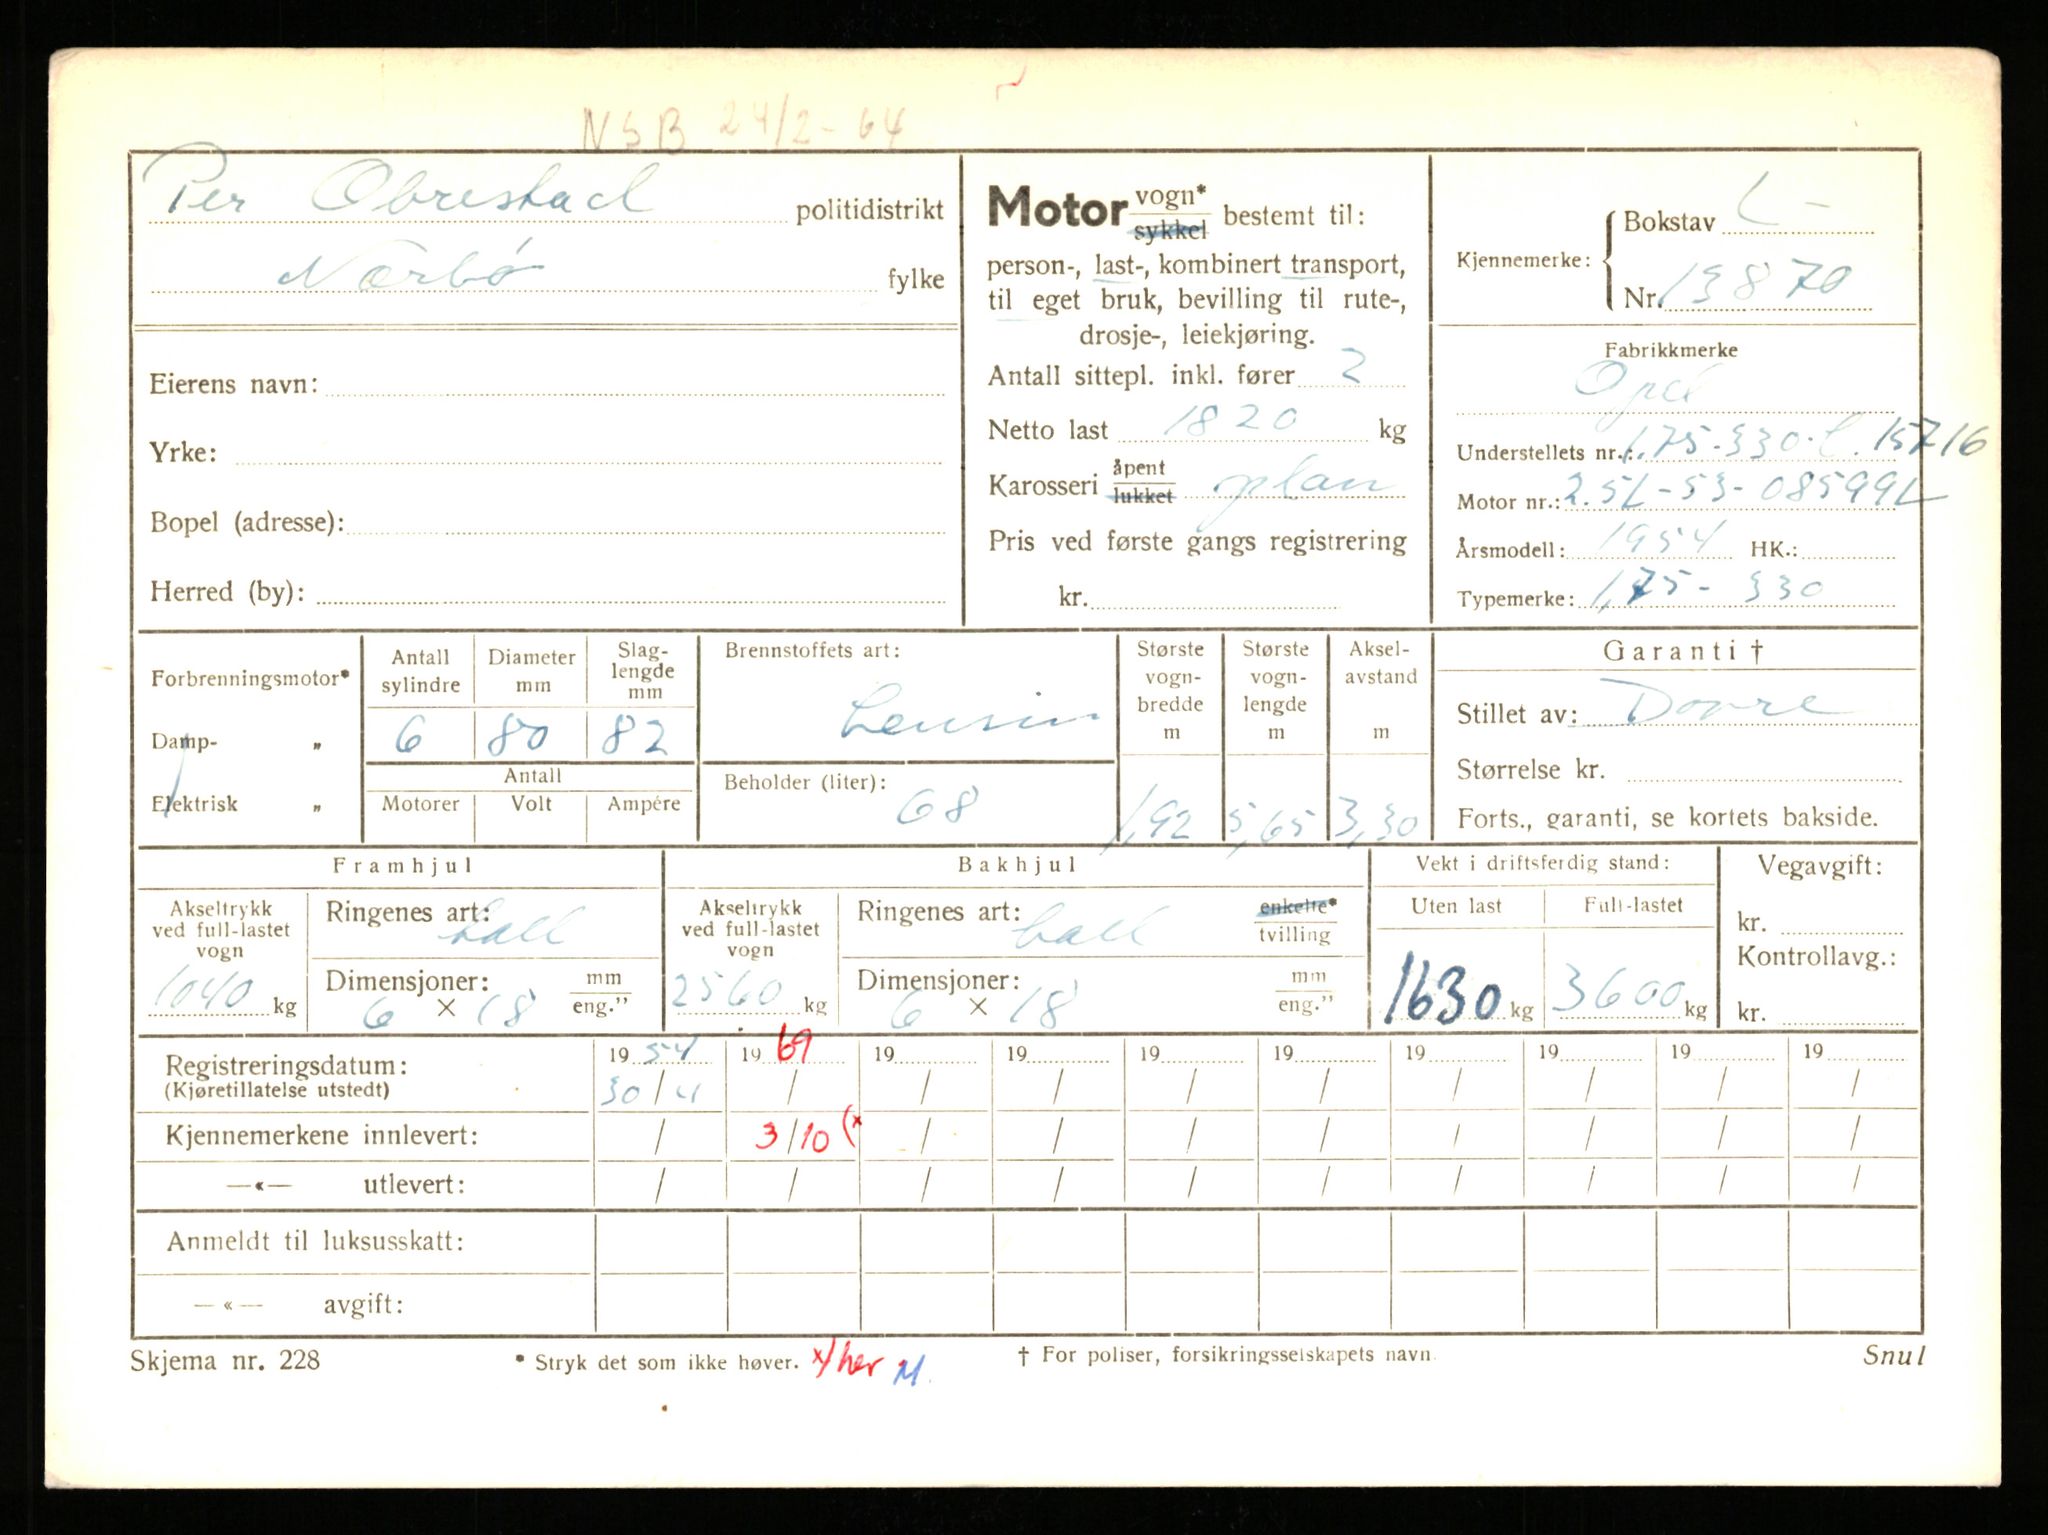 NSB 24/2-64
Per Obrestad politidistrikt
Nærbø fylke
Eierens navn:
Yrke:
Bopel (adresse):
Herred (by):
Motor vogn* sykkel bestemt til:
person-, last-, kombinert transport,
til eget bruk, bevilling til rute-,
drosje-, leiekjøring.
Antall sittepl. inkl. fører 2
Netto last 1820 kg
Karosseri åpent lukket plan
Pris ved første gangs registrering
kr.
Kjennemerke: Bokstav L-
Nr. 13870
Fabrikkmerke
Opel
Understellets nr.: 1.75-330-L.15716
Motor nr.: 2.5L-53-08599L
Årsmodell: 1954 HK.:
Typemerke: 1,75-330
Forbrenningsmotor*
Damp- „
Elektrisk „
Antall sylindre Diameter mm Slag-lengde mm
6 80 82
Antall
Motorer Volt Ampére
Brennstoffets art:
bensin
Beholder (liter):
68
Største vogn-bredde m
1,92
Største vogn-lengde m
5,65
Aksel-avstand m
3,30
Garanti †
Stillet av: Dovre
Størrelse kr.
Forts., garanti, se kortets bakside.
Framhjul
Akseltrykk
ved full-lastet
vogn
1040 kg
Ringenes art: ball
Dimensjoner: mm
6 × 18 eng.”
Bakhjul
Akseltrykk
ved full-lastet
vogn
2560 kg
Ringenes art: ball enkelte* tvilling
Dimensjoner: mm
6 × 18 eng.”
Vekt i driftsferdig stand:
Uten last Full-lastet
1630 kg 3600 kg
Vegavgift:
kr.
Kontrollavg.:
kr.
Registreringsdatum: 19 54 19 69 19 19 19 19 19 19 19 19
(Kjøretillatelse utstedt) 30/4 / / / / / / / / /
Kjennemerkene innlevert: / 3/10 (x / / / / / / / /
—«— utlevert: / / / / / / / / / /
Anmeldt til luksusskatt:
—«— avgift:
Skjema nr. 228 * Stryk det som ikke høver. x/her M. † For poliser, forsikringsselskapets navn. Snul